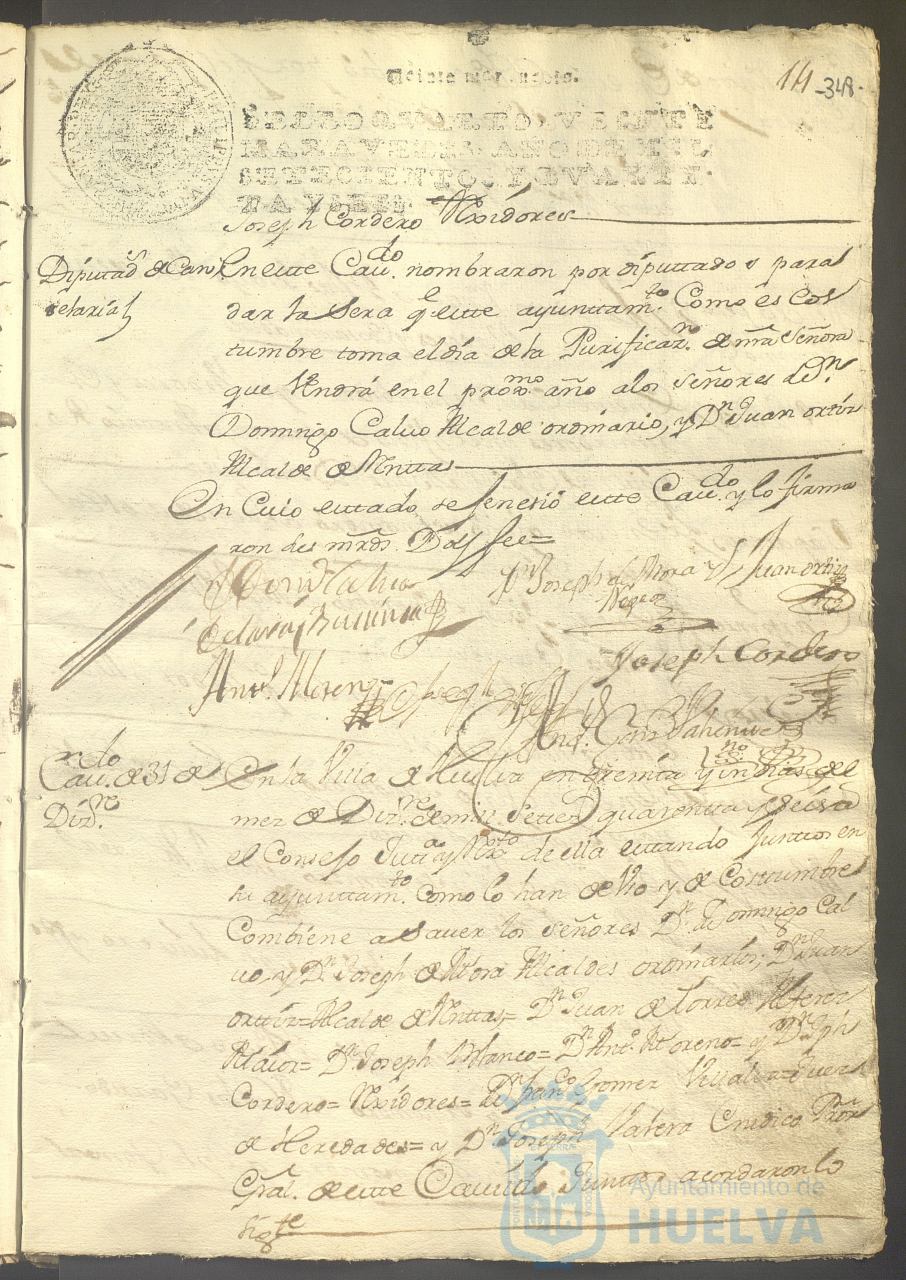 14 -348-
Veinte maravedis.
SELLO QVARTO, VEINTE
MARAVEDIS, AÑO DE MIL
SETECIENTOS Y QVAREN-
TA Y SEIS.
Joseph Cordero Rexidores
Diputads de Can
delaria
En este Cavdo. nombraron por diputtados para
dar la Sera qe este ayunttamto. Como es Cos
tumbre toma el dia de la Purificazn. de nra Señora
que Vendrá en el proxmo. año a los señores Dn.
Domingo Calvo Alcalde ordinario, y Dn Juan orttiz
Alcalde de Mnttas
En Cuio esttado se feneció este Cavdo. y lo firma
ron des mrds. Doy fee=
Dn Joseph de Mora
Negro
Juan ortiz
Joseph Cordero
Antto. Moreno
Cavdo. de 31 de
Dizre.
En la Villa de Huelva en treinta y un dias del
mez de Dizre. de mil Settezs. quarenta y seis a
el Consejo Justa. y Rexto. de ella esttando Juntos en
su ayunttamto. como lo han de Uso y de Costumbre
Combiene a Saver los señores Dn. Domingo Cal
vo, y Dn Joseph de Mora Alcaldes ordinarios; Dn Juan
orttiz= Alcalde de Mnttas= Dn Juan de Torres Alferez
Maior= Dn Joseph Blanco= Dn Anto. Moreno= y Dn Jph
Cordero= Rexidores= Dn Franco Gomez Juez
de Heredades= y Dn Joseph Valera Cindico Pror
Gral. de este Cavildo Junttos acordaron lo
sigte
Ayuntamiento de
HUELVA